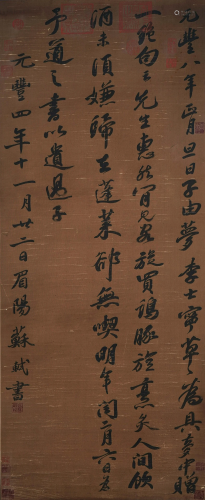 元豐八年正月旦日子由夢李士寧草草為具夢中贈
一絕句云先生惠然肯見客旋買鷄豚旋烹炙人間飲
酒未須嫌歸去蓬萊卻無喫明年閏二月六日為
予道之書以遺過子
元豐四年十一月廿二日眉陽蘇軾書